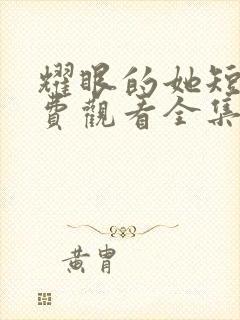 耀眼的她短
費觀看全集
黃胄